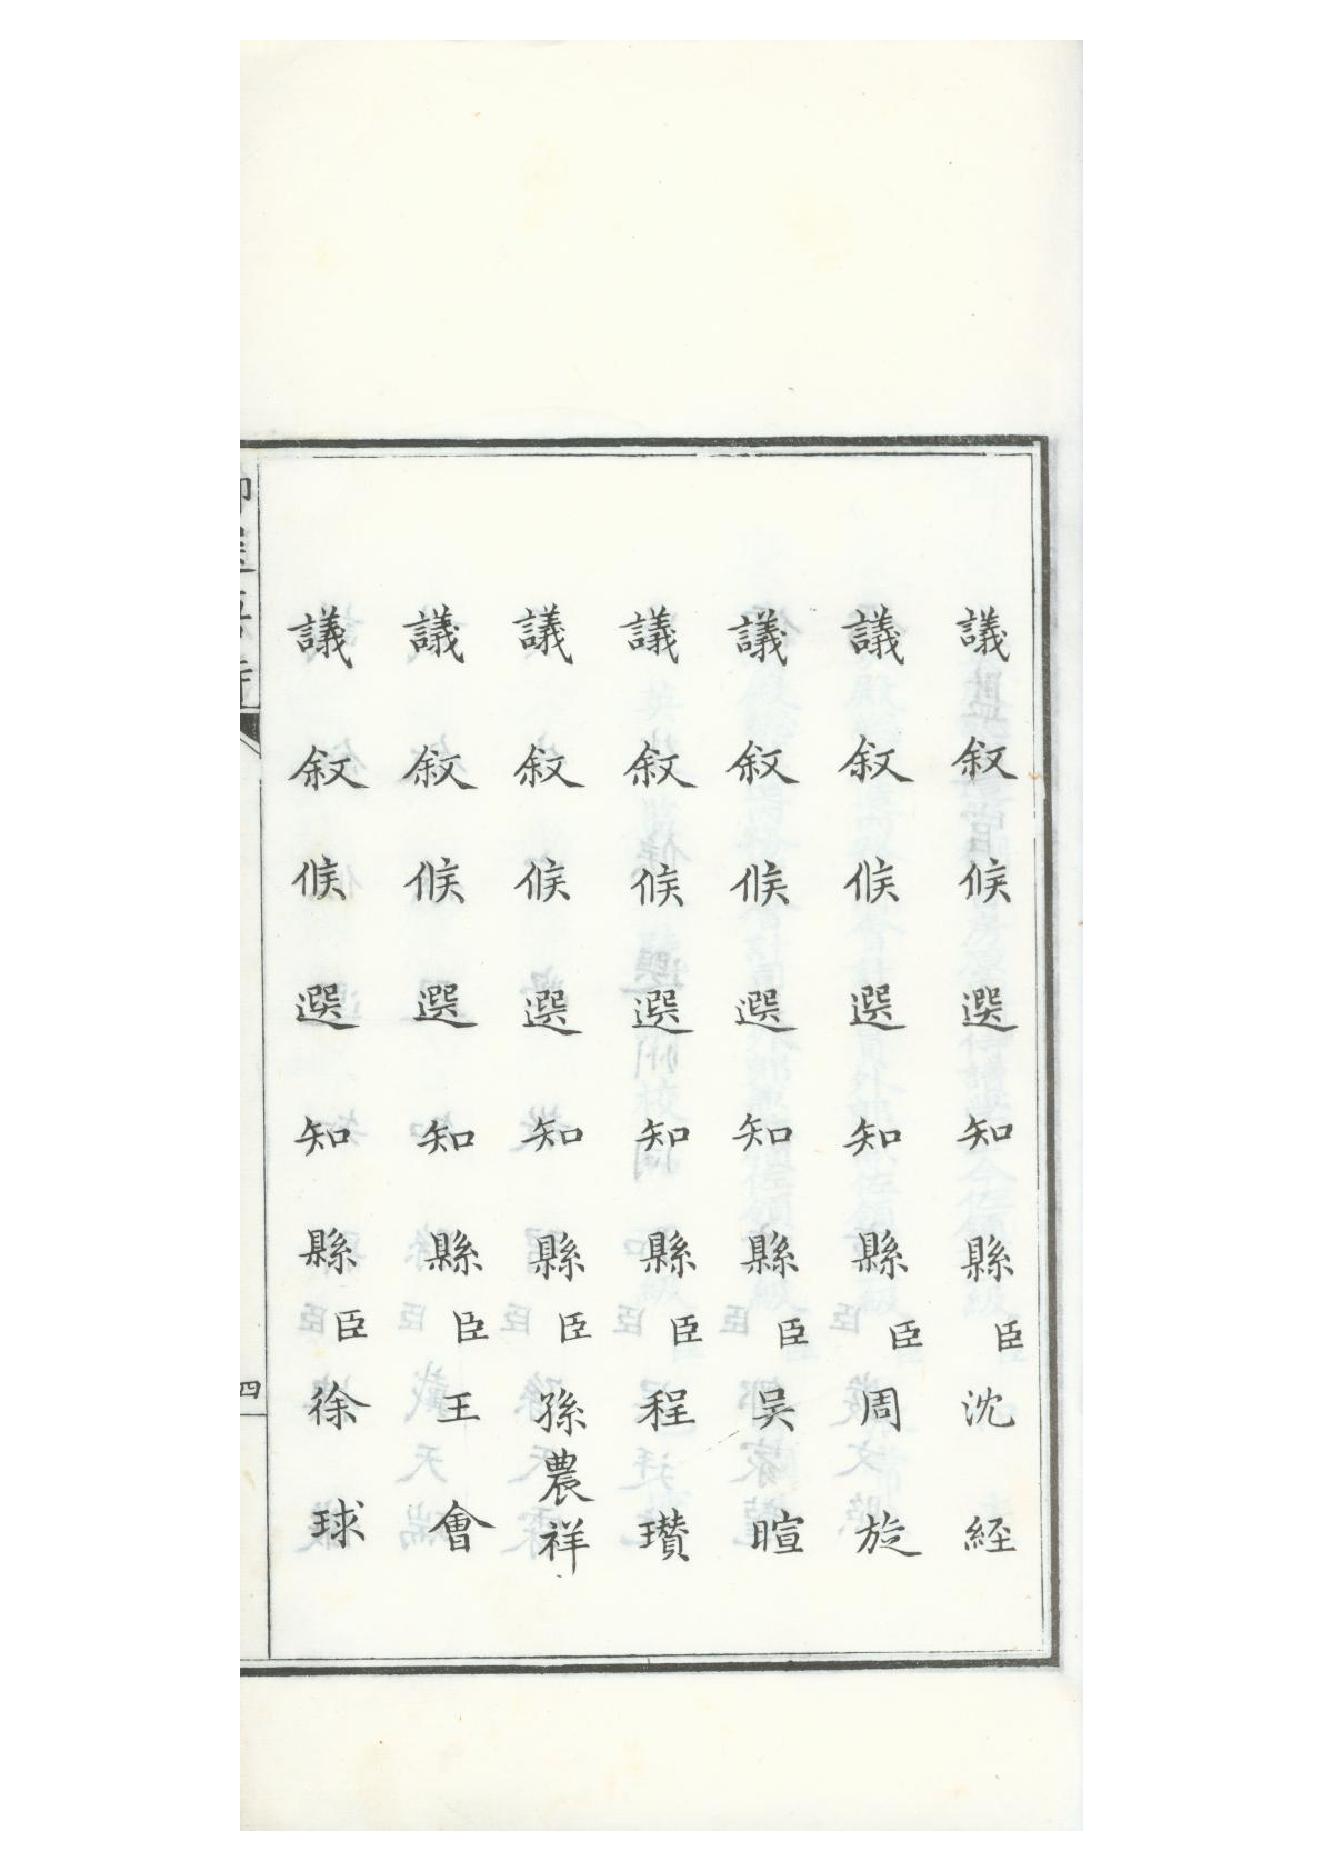 議叙候選知縣臣沈經
議叙候選知縣臣周旋
議叙候選知縣臣吴暄
議叙候選知縣臣程瓚
議叙候選知縣臣孫農祥
議叙候選知縣臣王會
議叙候選知縣臣徐球
四